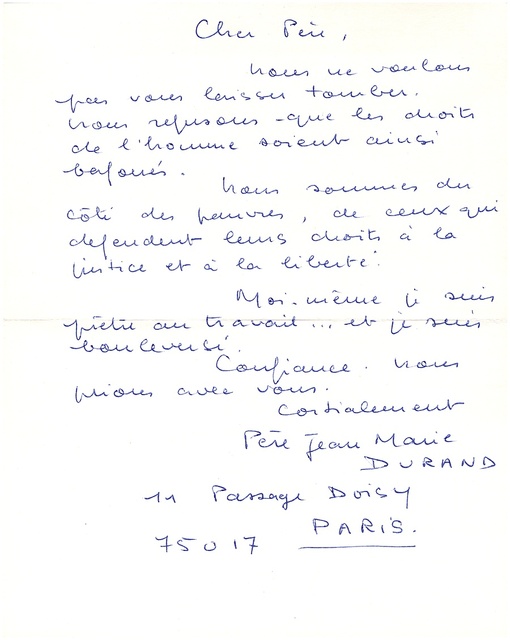 Cher Père,
Nous ne voulons
pas vous laisser tomber.
Nous refusons que les droits
de l'homme soient ainsi
bafoués.
Nous sommes du
côté des pauvres, de ceux qui
defendent leurs droits à la
justice et à la liberté.
Moi-même je suis
prêtre au travail... et je suis
bouleversé.
Confiance. Nous
prions avec vous.
Cordialement
Père Jean Marie
DURAND
11 Passage DOISY
75017 PARIS.